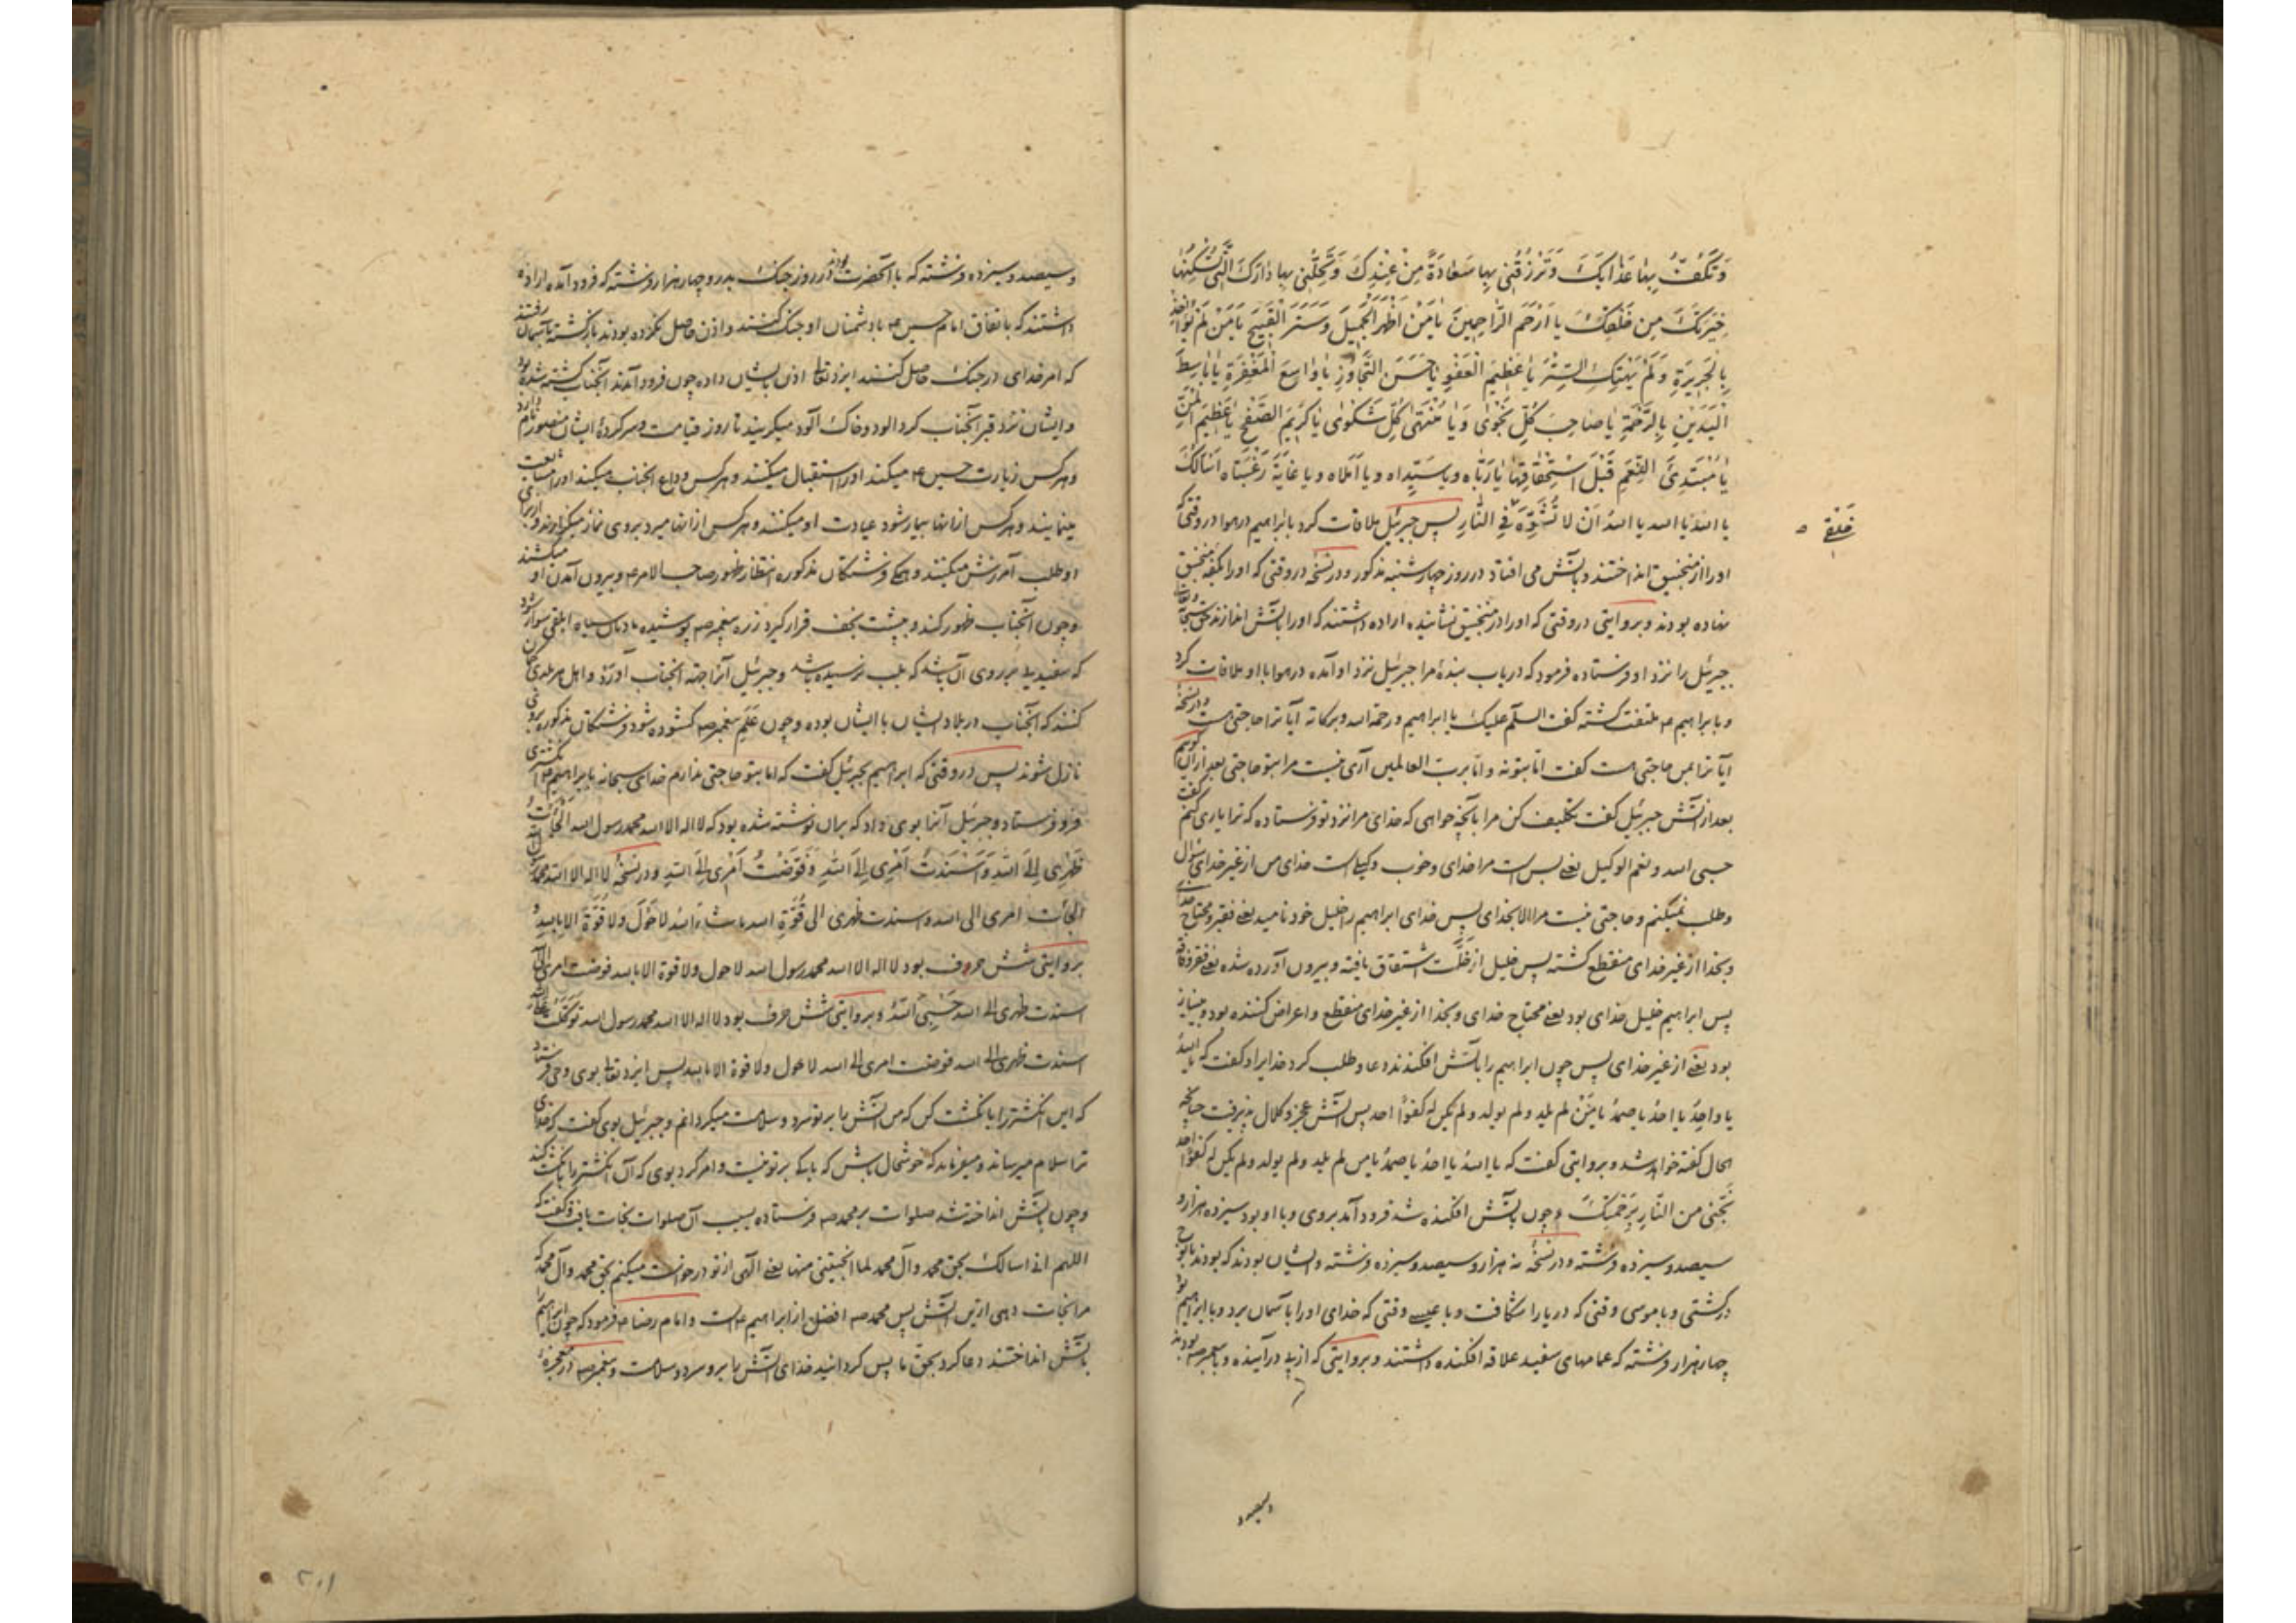 وَتَكُفُّ بِهَا عَذَابَكَ وَتَرْزُقُنِي بِهَا سَعَادَةً مِنْ عِنْدِكَ وَتُحِلَّنِي بِهَا دَارَكَ الَّتِي تُسْكِنُهَا
خِيَرَتَكَ مِنْ خَلْقِكَ يا اَرْحَمَ الرَّاحِمِينَ يَا مَنْ اَظْهَرَ الْجَمِيلَ وَسَتَرَ الْقَبِيحَ يَا مَنْ لَمْ يُؤَاخِذْ
بِالْجَرِيرَةِ وَلَمْ يَهْتِكِ السِّتْرَ يَا عَظِيمَ الْعَفْوِ يَا حَسَنَ التَّجَاوُزِ يَا وَاسِعَ الْمَغْفِرَةِ يَا بَاسِطَ
الْيَدَيْنِ بِالرَّحْمَةِ يَا صَاحِبَ كُلِّ نَجْوَى وَيَا مُنْتَهَى كُلِّ شَكْوَى يَا كَرِيمَ الصَّفْحِ يَا عَظِيمَ الْمَنِّ
يَا مُبْتَدِئَ النِّعَمِ قَبْلَ اسْتِحْقَاقِهَا يَا رَبَّاه ويا سَيِّداه ويا اَمَلاه ويا غَايَةَ رَغْبَتَاه اَسْاَلُكَ
يا اللهُ يا الله يا اللهُ اَنْ لا تُشَوِّهَ فِي النَّارِ پس جبرئیل ملاقات کرد با ابراهیم در هوا در وقتی که
خَلْقِي
او را از منجنیق انداختند و بآتش می افتاد در روز چهارشنبه مذکور و در نسخهٔ در وقتی که او را بکفهٔ منجنیق
نهاده بودند و بروایتی در وقتی که او را در منجنیق نشانیده اراده داشتند که او را بآتش اندازند حق سبحانه
جبرئیل را نزد او فرستاده فرمود که دریاب بندهٔ مرا جبرئیل نزد او آمده در هوا با او ملاقات کرد
و با ابراهیم ع ملتفت گشته گفت السلام علیک یا ابراهیم و رحمة الله و برکاته آیا ترا حاجتی هست و در نسخهٔ
آیا ترا بمن حاجتی هست گفت اما بتو نه و اما برب العالمین آری نیست مرا بتو حاجتی بعد از آن
بعد از آتش جبرئیل گفت تکلیف کن مرا بآنچه خواهی که خدای مرا نزد تو فرستاده که ترا یاری کنم گفت
حسبی الله و نعم الوکیل یعنی بس است مرا خدای و خوب وکیلی است خدای من از غیر خدای سؤال
وطلب نمیکنم و حاجتی نیست مرا الا بخدای پس خدای ابراهیم را خلیل خود نامید یعنی فقیر و محتاج خدای
و بخدا از غیر خدای منقطع گشته پس خلیل از خَلَّت اشتقاق یافته و بیرون آورده شده یعنی فقر و فاقه
پس ابراهیم خلیل خدای بود یعنی محتاج خدای و بخدا از غیر خدای منقطع و اعراض کننده بود و بی نیاز
بود یعنی از غیر خدای پس چون ابراهیم را بآتش افکندند دعا و طلب کرد خدا را و گفت که یا اللهُ
یا واحِدُ یا احدُ یا صمدُ یا مَنْ لم یلد ولم یولد ولم یکن له کفوًا احد پس آتش عجز و کلال پذیرفت چنانچه
الحال گفته خواهد شد و بروایتی گفت که یا اللهُ یا احدُ یا صمدُ یا من لم یلد ولم یولد ولم یکن له کفوًا احد
نَجِّنِي من النَّارِ بِرَحْمَتِكَ و چون بآتش افکنده شد فرود آمد بروی و با او بود سیزده هزار و
سیصد و سیزده فرشته و در نسخهٔ نه هزار و سیصد و سیزده فرشته و ایشان بودند که بودند با نوح
در کشتی و با موسی وقتی که دریا را شکافت و با عیسی وقتی که خدای او را بآسمان برد و با ابراهیم بود
چهار هزار فرشته که عمامهای سفید علاقه افکنده داشتند و بروایتی که از پی درآینده و با پیغمبر ص بودند
وسیصد
وسیصد و سیزده فرشته که با آنحضرت بودند در روز جنک بدر و چهار هزار فرشته که فرود آمده اراده
داشتند که باتفاق امام حسین ع با دشمنان او جنک کنند و اذن حاصل نکرده بودند بازگشته بآسمان رفتند
که امر خدای در جنک حاصل کنند ایزد تعالی اذن بایشان داده چون فرود آمدند آنجناب کشته شده بود
و ایشان نزد قبر آنجناب گرد الود و خاک آلود میگریند تا روز قیامت و سرکردهٔ ایشان منصور نام دارد
و هر کس زیارت حسین ع میکند او را استقبال میکنند و هر کس وداع آنجناب میکند او را مشایعت
مینمایند و هر کس ازانها بیمار شود عیادت او میکنند و هر کس ازانها میرد بروی نماز میگزارند و از برای
او طلب آمرزش میکنند و همگی فرشتگان مذکوره انتظار ظهور صاحب الامر ع و بیرون آمدن او میکشند
و چون آنجناب ظهور کند و بپشت نجف قرار گیرد زره پیغمبر ص پوشیده بادبان سیاه ابلقی سوار شود
که سفیدی بر روی آن باشد که بلب نرسیده باشد و جبرئیل آنرا جهة آنجناب آورد و اهل هر بلدی گمان
کنند که آنجناب در بلاد ایشان با ایشان بوده و چون عَلَم پیغمبر ص گشوده شود فرشتگان مذکوره بروی
نازل شوند پس در وقتی که ابراهیم بجبرئیل گفت که اما بتو حاجتی ندارم خدای سبحانه بابراهیم ع انگشتری
فرو فرستاد و جبرئیل آنرا بوی داد که بران نوشته شده بود که لا اله الا الله محمد رسول الله اَلْجَأْتُ
ظَهْرِي اِلَى اللّهِ وَاَسْنَدْتُ اَمْرِي اِلَى اللّهِ وَفَوَّضْتُ اَمْرِي اِلَى اللّهِ و در نسخهٔ لا اله الا الله محمد
الجأت امری الی الله و اسندت ظهری الی قُوَّةِ الله ما شاءَ اللهُ لا حَوْلَ ولا قُوَّةَ الا بالله و
بروایتی شش حروف بود لا اله الا الله محمد رسول الله لا حول ولا قوة الا بالله فوضت امری الی الله
اسندت ظهری الی الله حَسْبِيَ اللهُ و بروایتی شش حرف بود لا اله الا الله محمد رسول الله تَوَکَّلْتُ علی الله
اسندت ظهری الی الله فوضت امری الی الله لا حول ولا قوة الا بالله پس ایزد تعالی بوی وحی فرستاد
که این انگشتر را بانگشت کن که من آتش را بر تو سرد و سلامت میگردانم و جبرئیل بوی گفت که خدای
ترا سلام میرساند و میفرماید که خوشحال باش که باکی بر تو نیست و امر کرد بوی که آن انگشتر را بانگشت کند
و چون بآتش انداخته شد صلوات بر محمد ص فرستاده بسبب آن صلوات نجات یافت و گفت که
اللهم انی اسالک بحق محمد وآل محمد لما انجیتنی منها یعنی الهی از تو درخواست میکنم بحق محمد وآل محمد که
مرا نجات دهی ازین آتش پس محمد ص افضل از ابراهیم ع است و امام رضا ع فرمود که چون ابراهیم را
بآتش انداختند دعا کرد بحق ما پس گردانید خدای آتش را برو سرد و سلامت و پیغمبر ص در معجزهٔ
۲۰۱